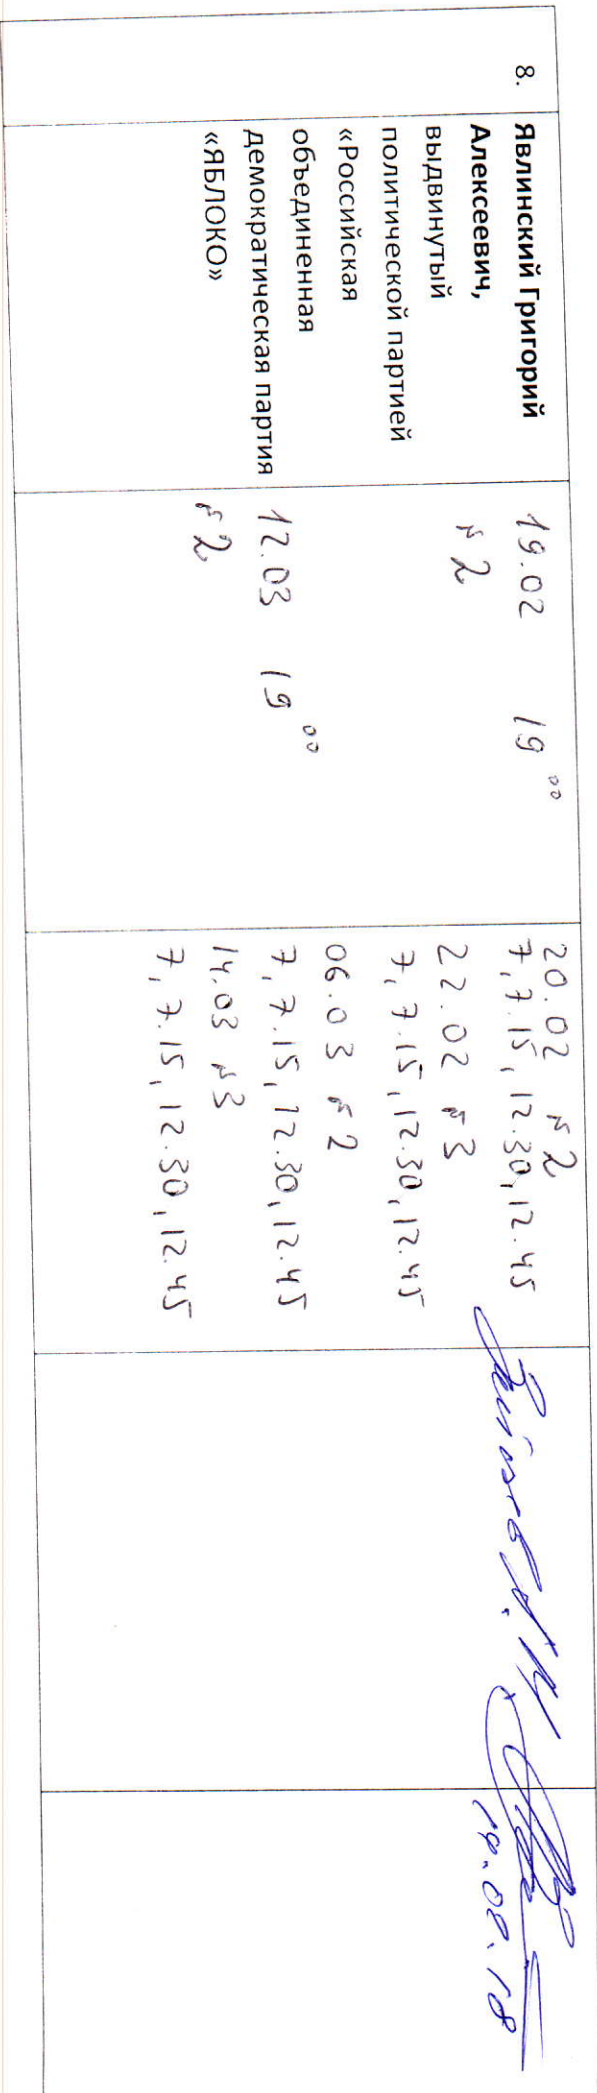 8.
Явлинский Григорий
Алексеевич,
выдвинутый
политической партией
«Российская
объединенная
демократическая партия
«ЯБЛОКО»
19.02 19 00
№2
12.03 19 00
№2
20.02 №2
7, 7.15, 12.30, 12.45
22.02 №3
7, 7.15, 12.30, 12.45
06.03 №2
7, 7.15, 12.30, 12.45
14.03 №3
7, 7.15, 12.30, 12.45
14.02.18